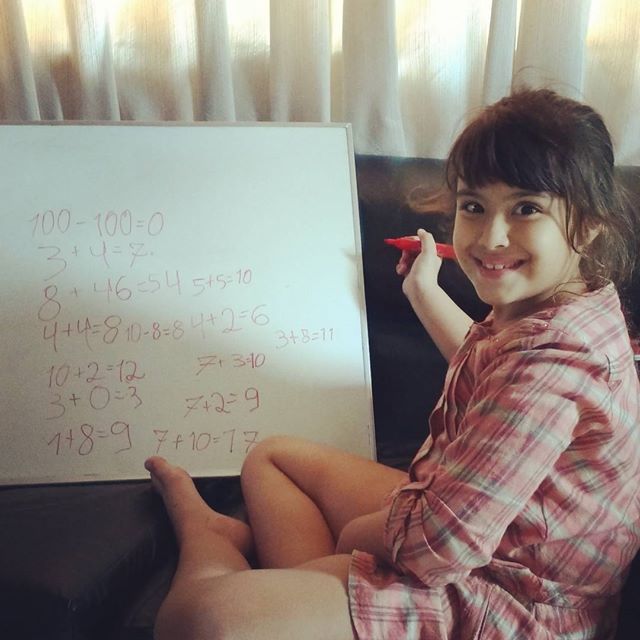 100 - 100 = 0
3 + 4 = 7.
8 + 46 = 54 5+5=10
4+4=8 10-8=8 4+2=6 3+8=11
10+2=12 7+3=10
3+0=3 7+2=9
1+8=9 7+10=17